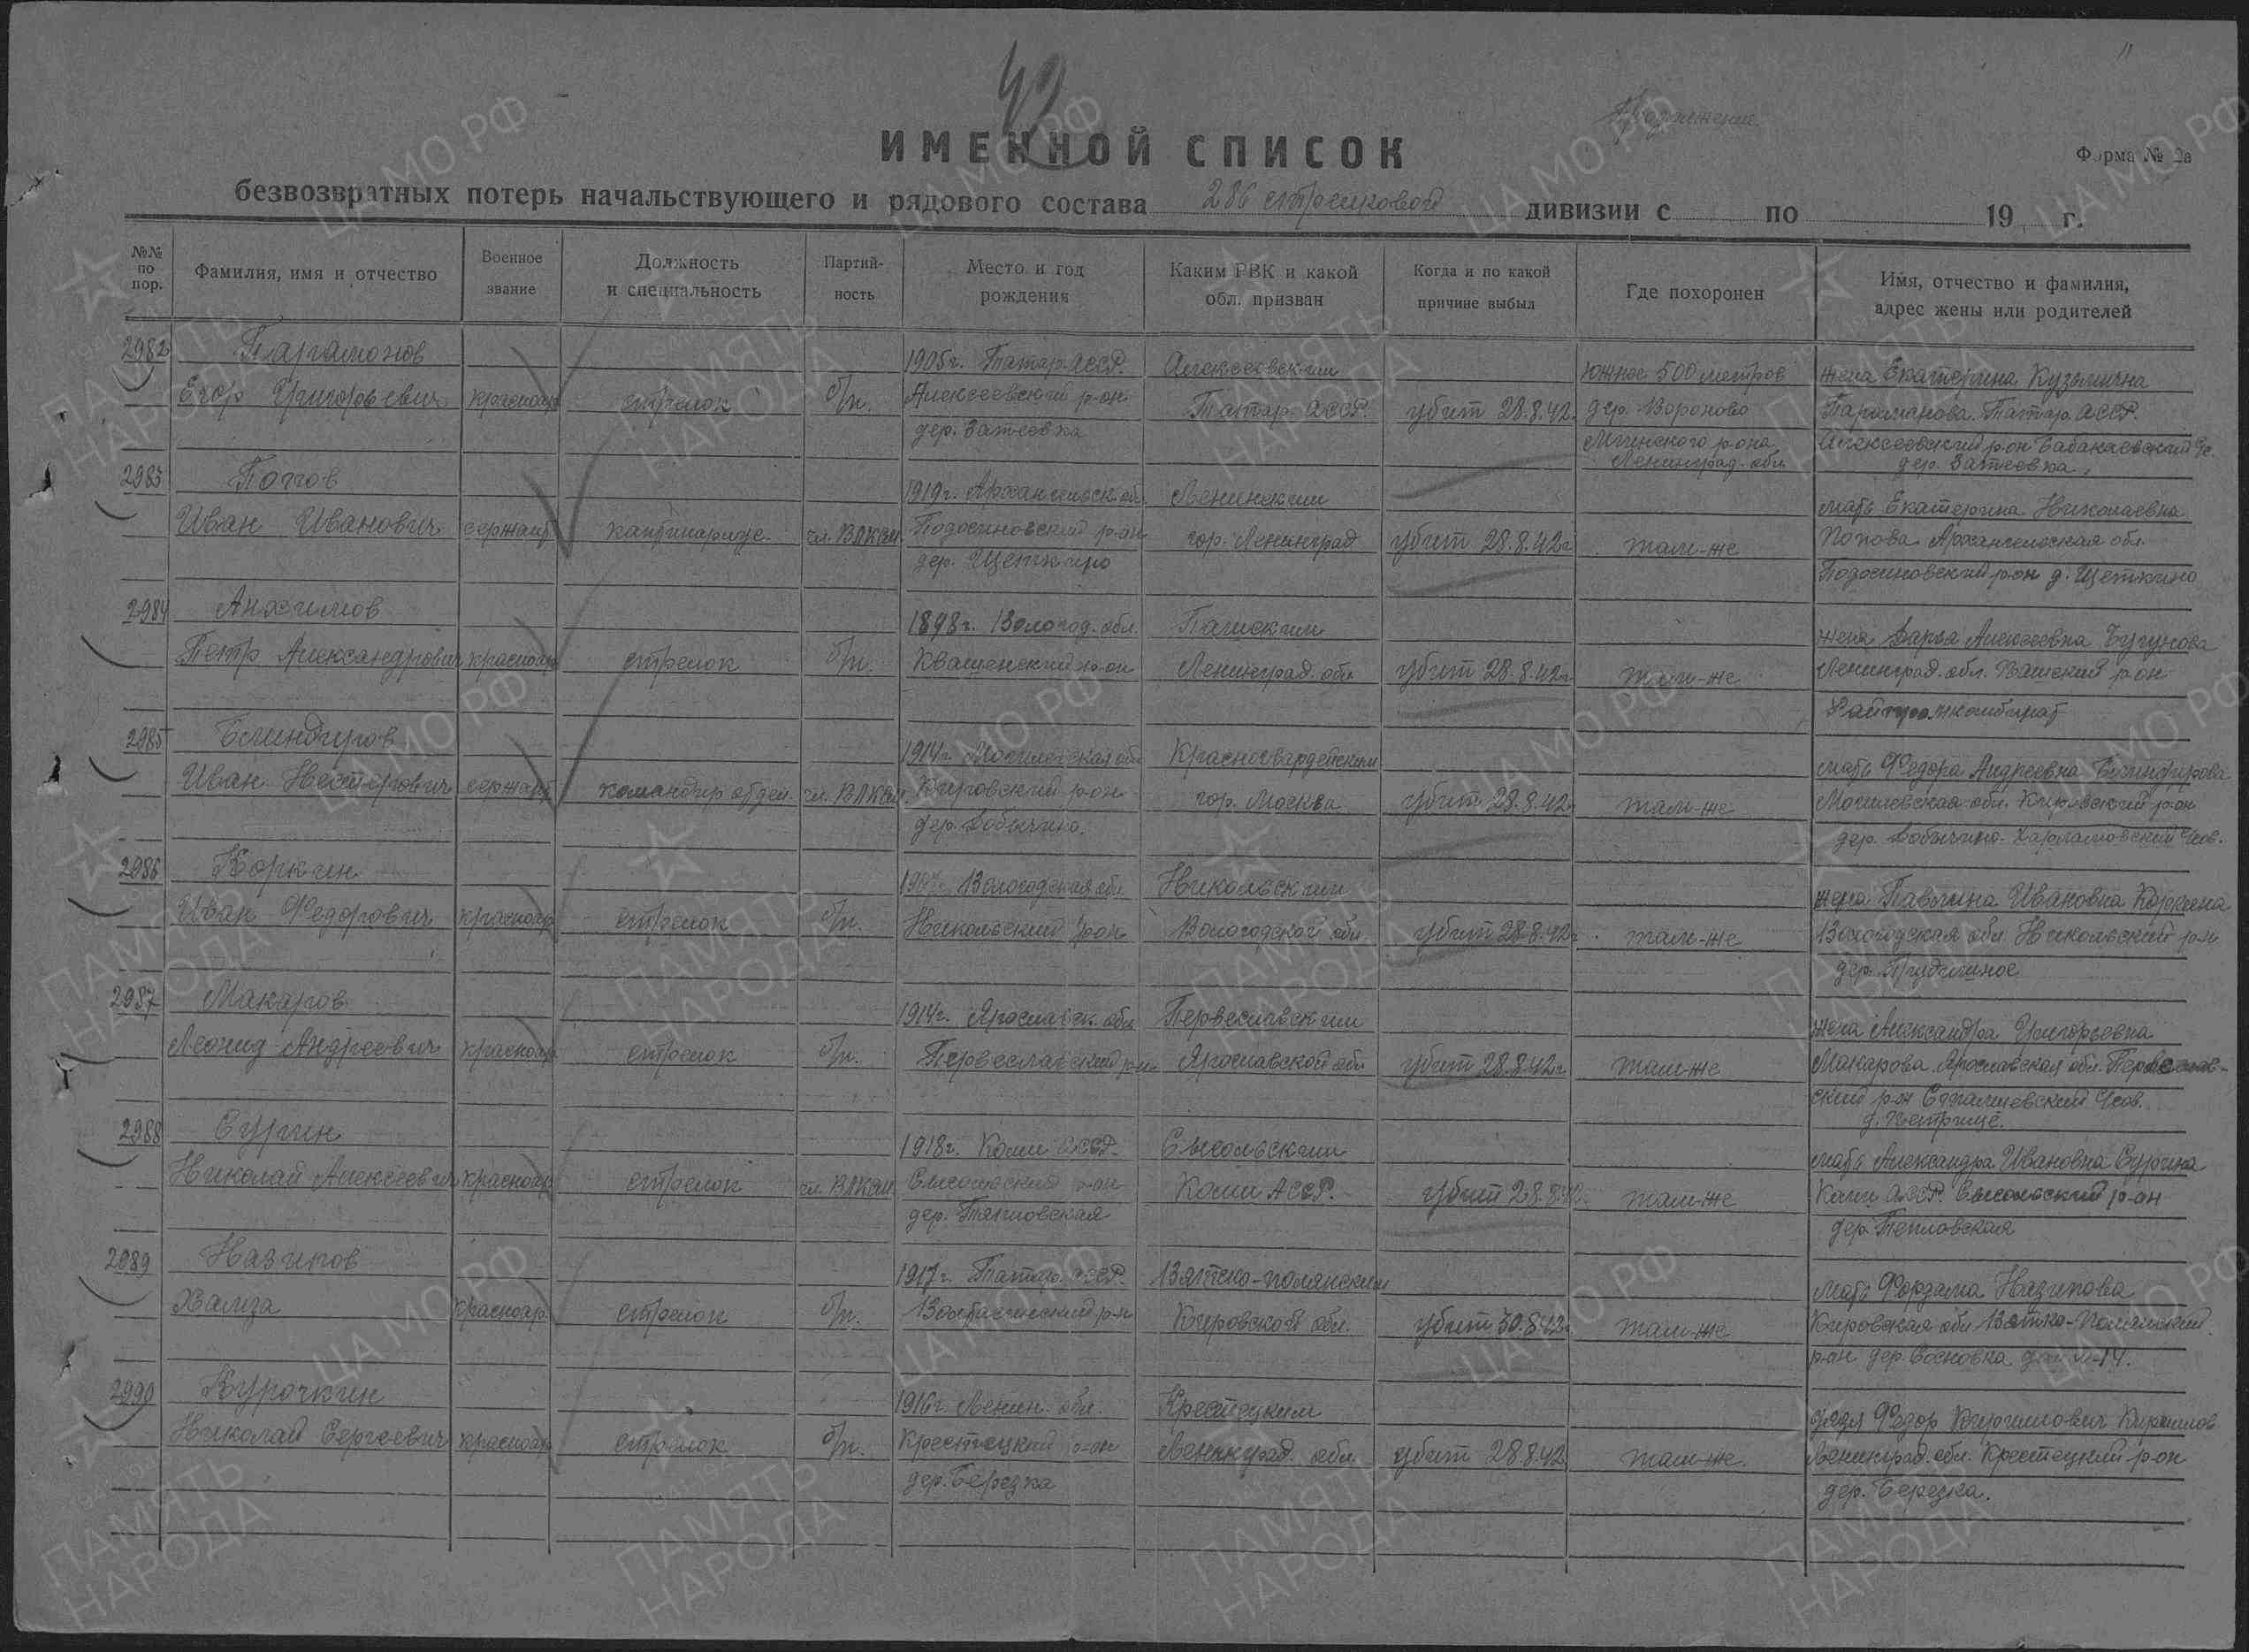 11
42
Продолжение
ИМЕННОЙ СПИСОК
Форма № 2а
безвозвратных потерь начальствующего и рядового состава 286 стрелковой дивизии с по 19 г.
№№ по пор.
Фамилия, имя и отчество
Военное звание
Должность и специальность
Партий-ность
Место и год рождения
Каким РВК и какой обл. призван
Когда и по какой причине выбыл
Где похоронен
Имя, отчество и фамилия, адрес жены или родителей
2982 Парамонов
Егор Григорьевич красноар стрелок б/п.
1905г. Татар. АССР.
Алексеевский р-он
дер. Затеевка
Алексеевским
Татар. АССР.
убит 28.8.42.
южнее 500 метров
дер. Вороново
Мгинского р-она
Ленинград. обл.
жена Екатерина Кузьминична
Парамонова. Татар. АССР.
Алексеевский р-он
дер. Затеевка
2983 Попов
Иван Иванович сержант чл. ВЛКСМ.
1919г. Архангельск. обл.
Подосиновский р-он
дер. Щеткино
Ленинским
гор. Ленинград
убит 28.8.42г
там-же
мать Екатерина Николаевна
Попова Архангельская обл.
Подосиновский р-он д. Щеткино
2984 Анхимов
Петр Александрович красноар стрелок б/п.
1898г. Вологод. обл.
р-он
Пашским
Ленинград. обл.
убит 28.8.42г
там-же
жена Дарья Алексеевна
Ленинград. обл. Пашский р-он
2985
Иван Нестерович сержант командир отдел. чл. ВЛКСМ.
1914г. Могилевская обл
Кировский р-он
дер. Добычино.
Красногвардейским
гор. Москва
убит 28.8.42г
там-же
мать Федора Андреевна
Могилевская обл. Кировский р-он
дер. Добычино
2986 Коркин
Иван Федорович красноар стрелок б/п.
Вологодская обл.
Никольский р-он
Никольским
Вологодской обл.
убит 28.8.42г.
там-же
жена Павлина Ивановна Коркина
Вологодская обл. Никольский р-н
дер.
2987 Макаров
Леонид Андреевич красноар стрелок б/п.
1914г. Ярославск. обл
Первеславский р-он
Первеславским
Ярославской обл
убит 28.8.42г
там-же
жена Александра Григорьевна
Макарова. Ярославская обл. Первеслав-
ский р-он
2988 Сургин
Николай Алексеевич красноар стрелок чл. ВЛКСМ
1918г. Коми АССР.
Сысольский р-он
дер.
Сысольским
Коми АССР.
убит 28.8.42
там-же
мать Александра Ивановна Сургина
Коми АССР. Сысольский р-он
дер.
2989 Назипов
Хамза красноар. стрелок б/п.
1917г. Татар. АССР.
р-н
Вятско-полянским
Кировской обл.
убит 30.8.42г
там-же
мать Назипова
Кировская обл. Вятско-Полянский
р-он дер. Сосновка
2990 Курочкин
Николай Сергеевич красноар стрелок б/п.
1916г. Ленин. обл.
Крестецкий р-он
дер. Березка
Крестецким
Ленинград. обл.
убит 28.8.42
там-же.
дядя Федор Кириллович Кириллов
Ленинград. обл. Крестецкий р-он
дер. Березка.